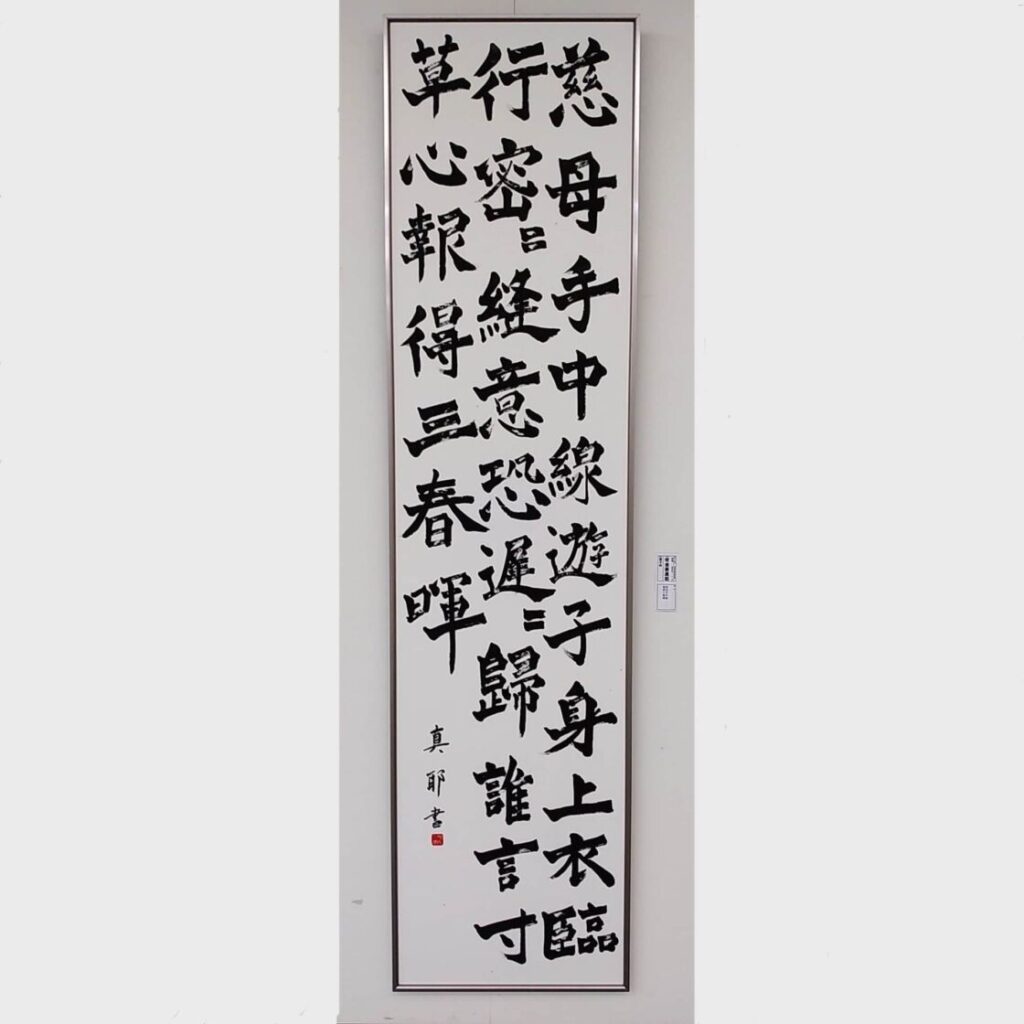 慈母手中線遊子身上衣臨
行密〻縫意恐遲〻歸誰言寸
草心報得三春暉
真耶書